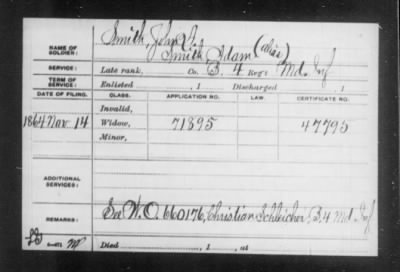 Smith, John V.
NAME OF SOLDIER: Smith Adam (alias)
SERVICE: Late rank, Co. B. 4 Reg't Md. Inf
TERM OF SERVICE: Enlisted , 1 Discharged , 1
DATE OF FILING. CLASS. APPLICATION NO. LAW. CERTIFICATE NO.
Invalid,
1864 Nov. 14 Widow, 71895 47795
Minor,
ADDITIONAL SERVICES:
REMARKS: See W.O. 660176, Christian Schleicher, B 4 Md. Inf
Died , 1 , at